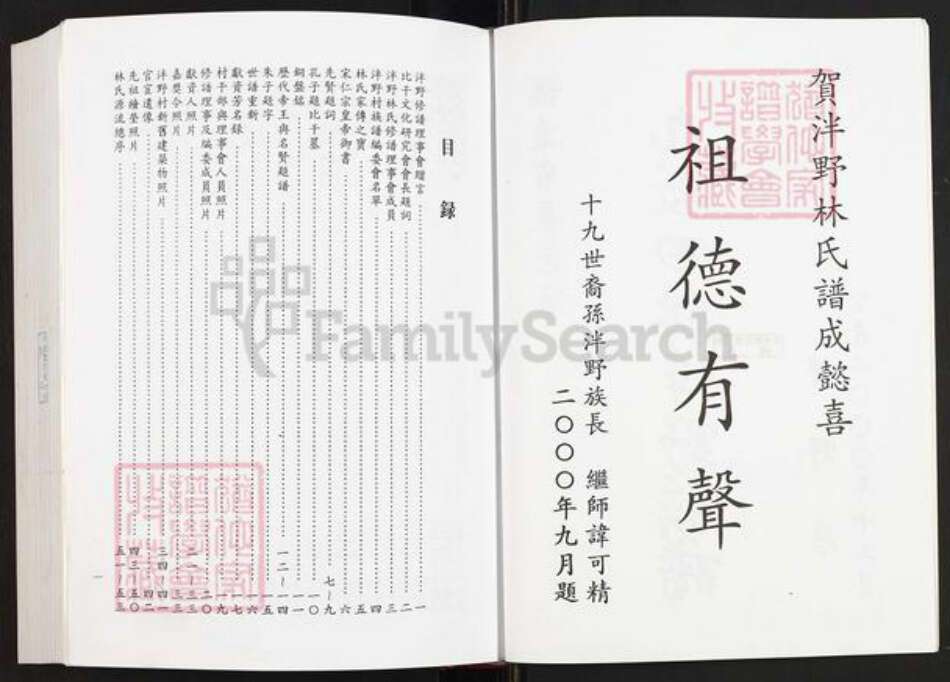 賀泮野林氏譜成懿喜
祖德有聲
十九世裔孫泮野族長 繼師諱可精
二〇〇〇年九月題
目錄
泮野修譜理事會贈言 一
比干文化研究會會長題詞 二
泮野林氏修譜理事會成員 三
泮野村族譜編委會名單 四
林氏家傳之寶 五
宋仁宗皇帝御書 六
先賢題詞 七~九
孔子題比干墓 一〇
銅盤銘 一一
歷代帝王與名賢題譜 一二~一四
朱子題字 一五
世譜重新 一六
獻資芳名錄 一七
村干部與理事會人員照片 一九
修譜理事及編委成員照片 二〇
獻資人照片
嘉獎令照片 三三
泮野村新舊建築物照片 三四~四一
官宦遺像 四二
先祖繪榮照片 四三~五〇
林氏源流總序 五一~五三
一
FamilySearch